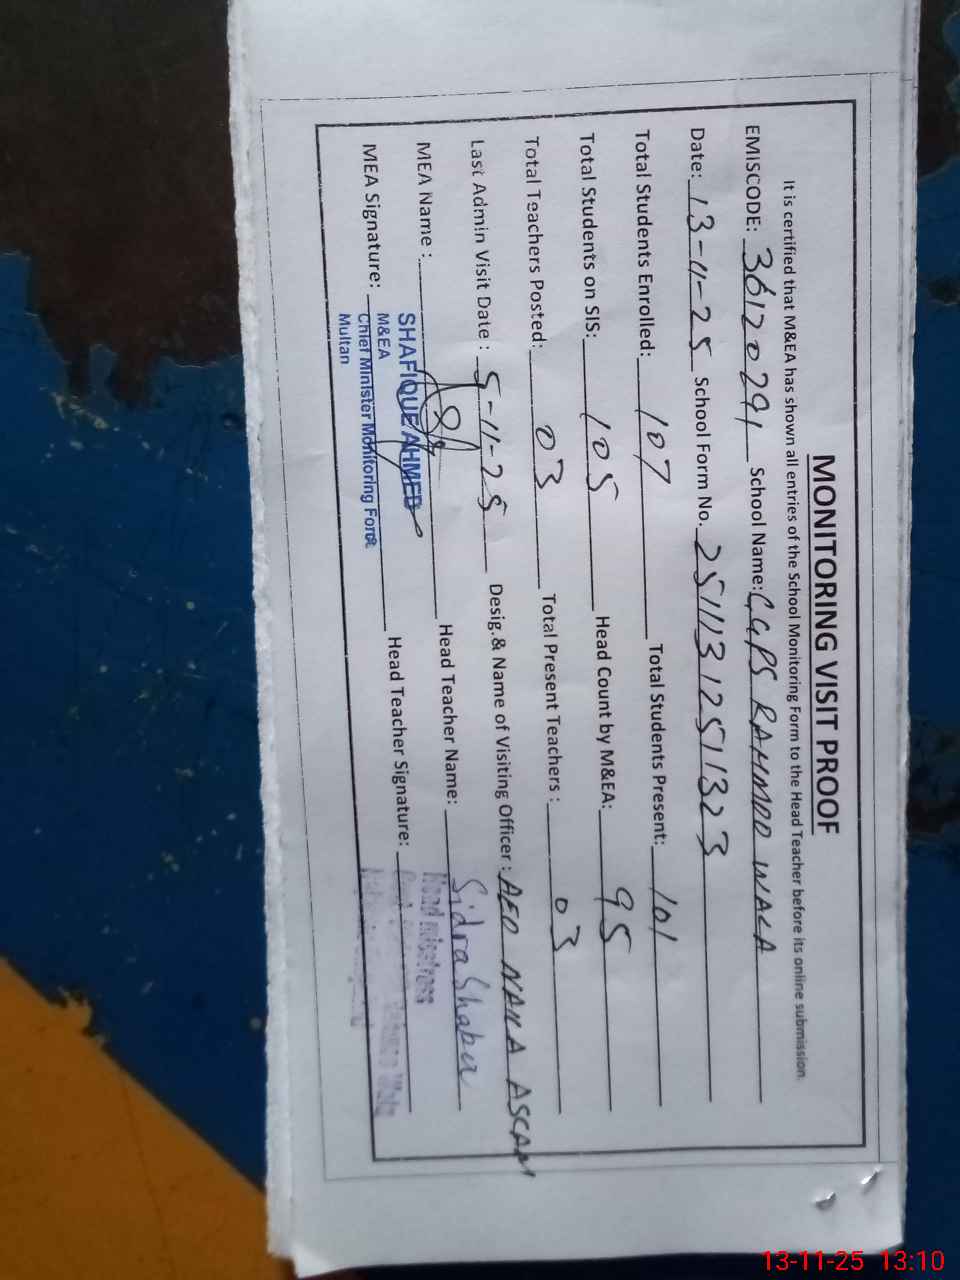 MONITORING VISIT PROOF
It is certified that M&EA has shown all entries of the School Monitoring Form to the Head Teacher before its online submission.
EMISCODE: 36120291 School Name: GGPS RAHMOO WALA
Date: 13-11-25 School Form No. 2511131251323
Total Students Enrolled: 107 Total Students Present: 101
Total Students on SIS: 105 Head Count by M&EA: 95
Total Teachers Posted: 03 Total Present Teachers : 03
Last Admin Visit Date : 5-11-25 Desig.& Name of Visiting Officer : AEO NAILA ASLAM
MEA Name : Head Teacher Name: Sidra Shabir
SHAFIQUE AHMED
Head mistress
MEA Signature: Head Teacher Signature:
M&EA
Chief Minister Monitoring Force
Multan
13-11-25 13:10